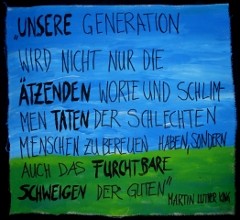 „UNSERE GENERATION
WIRD NICHT NUR DIE
ÄTZENDEN WORTE UND SCHLIM-
MEN TATEN DER SCHLECHTEN
MENSCHEN ZU BEREUEN HABEN, SONDERN
AUCH DAS FURCHTBARE
SCHWEIGEN DER GUTEN"
MARTIN LUTHER KING